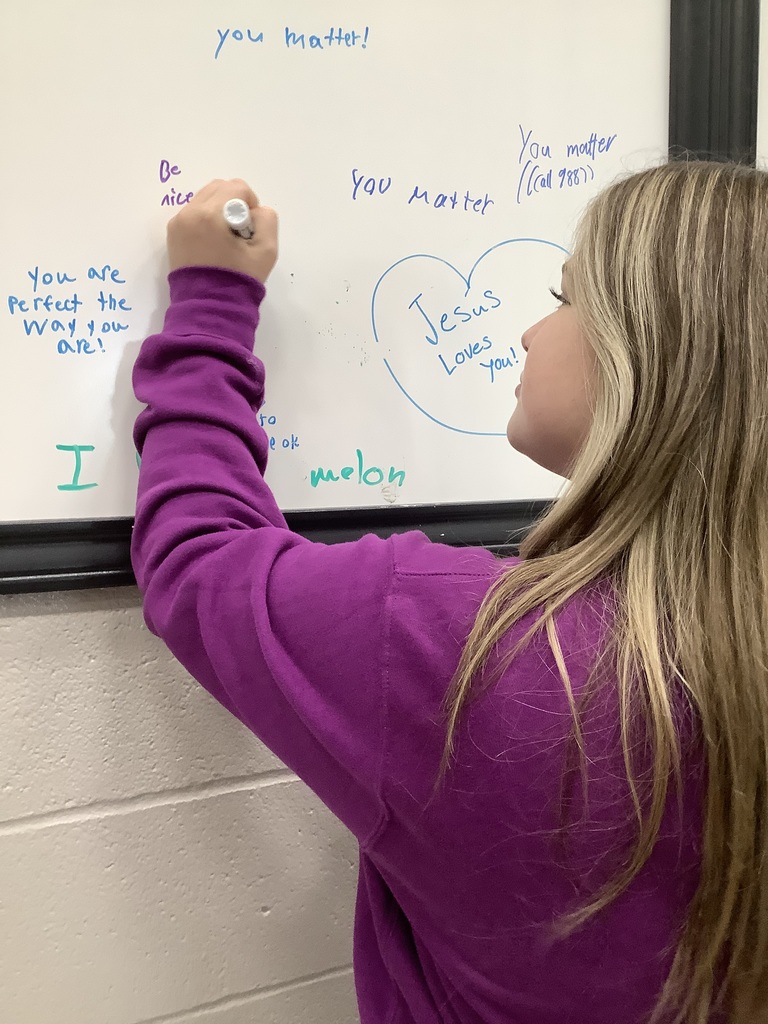 you matter!
You matter
((call 988))
Be
nice
You Matter
You are
Perfect the
Way you
are!
Jesus
Loves
you!
to
ok
I
melon